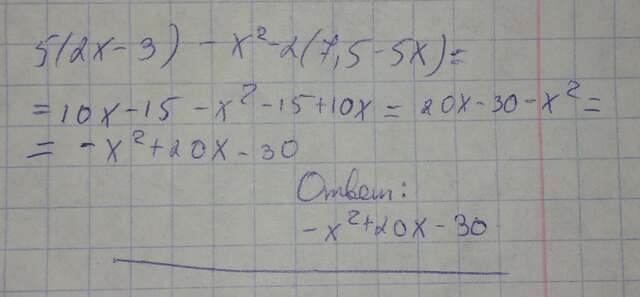 5(2x-3) - x²-2(7,5-5x)=
=10x-15-x²-15+10x= 20x-30-x²=
= -x²+20x-30
Ответ:
-x²+20x-30